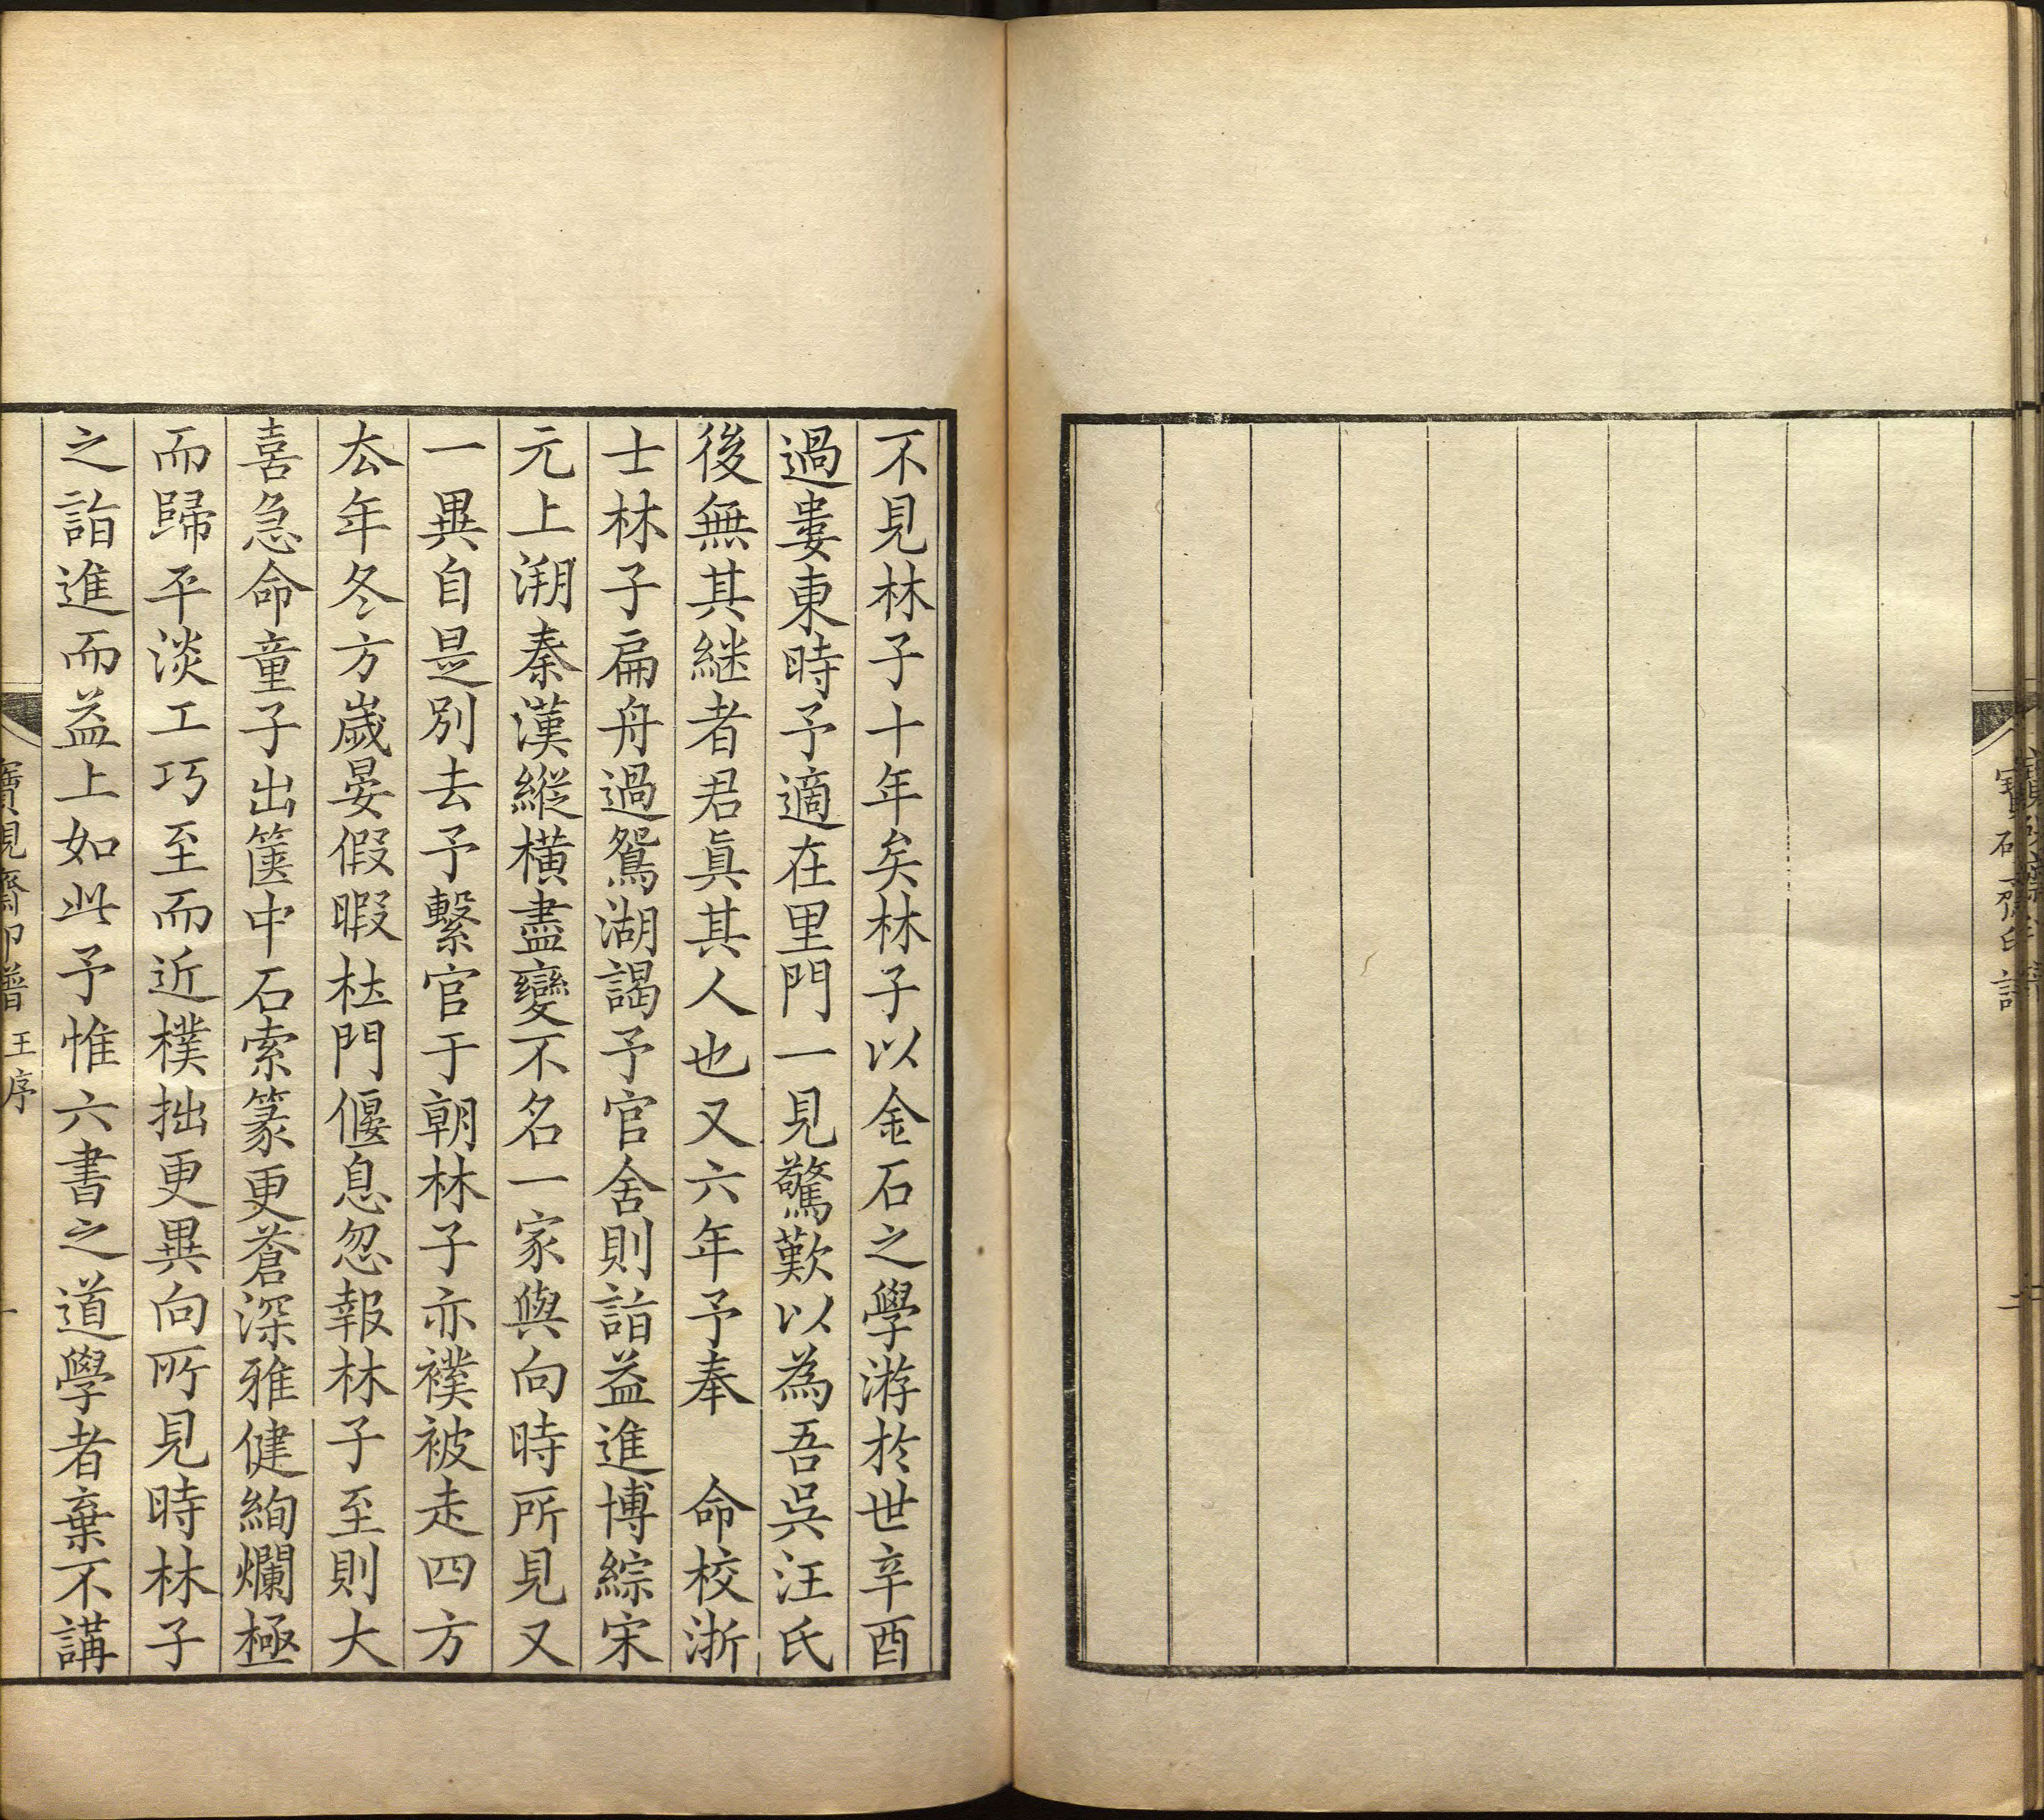 不見林子十年矣林子以金石之學游於世辛酉
過婁東時予適在里門一見驚歎以為吾吳汪氏
後無其継者君眞其人也又六年予奉　命校浙
士林子扁舟過鴛湖謁予官舍則詣益進博綜宋
元上溯秦漢縱橫盡變不名一家與向時所見又
一異自是別去予繫官于朝林子亦襆被走四方
厺年冬方嵗晏假暇杜門偃息忽報林子至則大
喜急命童子出篋中石索篆更蒼深雅健絢爛極
而歸平淡工巧至而近樸拙更異向所見時林子
之詣進而益上如此予惟六書之道學者棄不講
寶硯齋印譜 王序
一